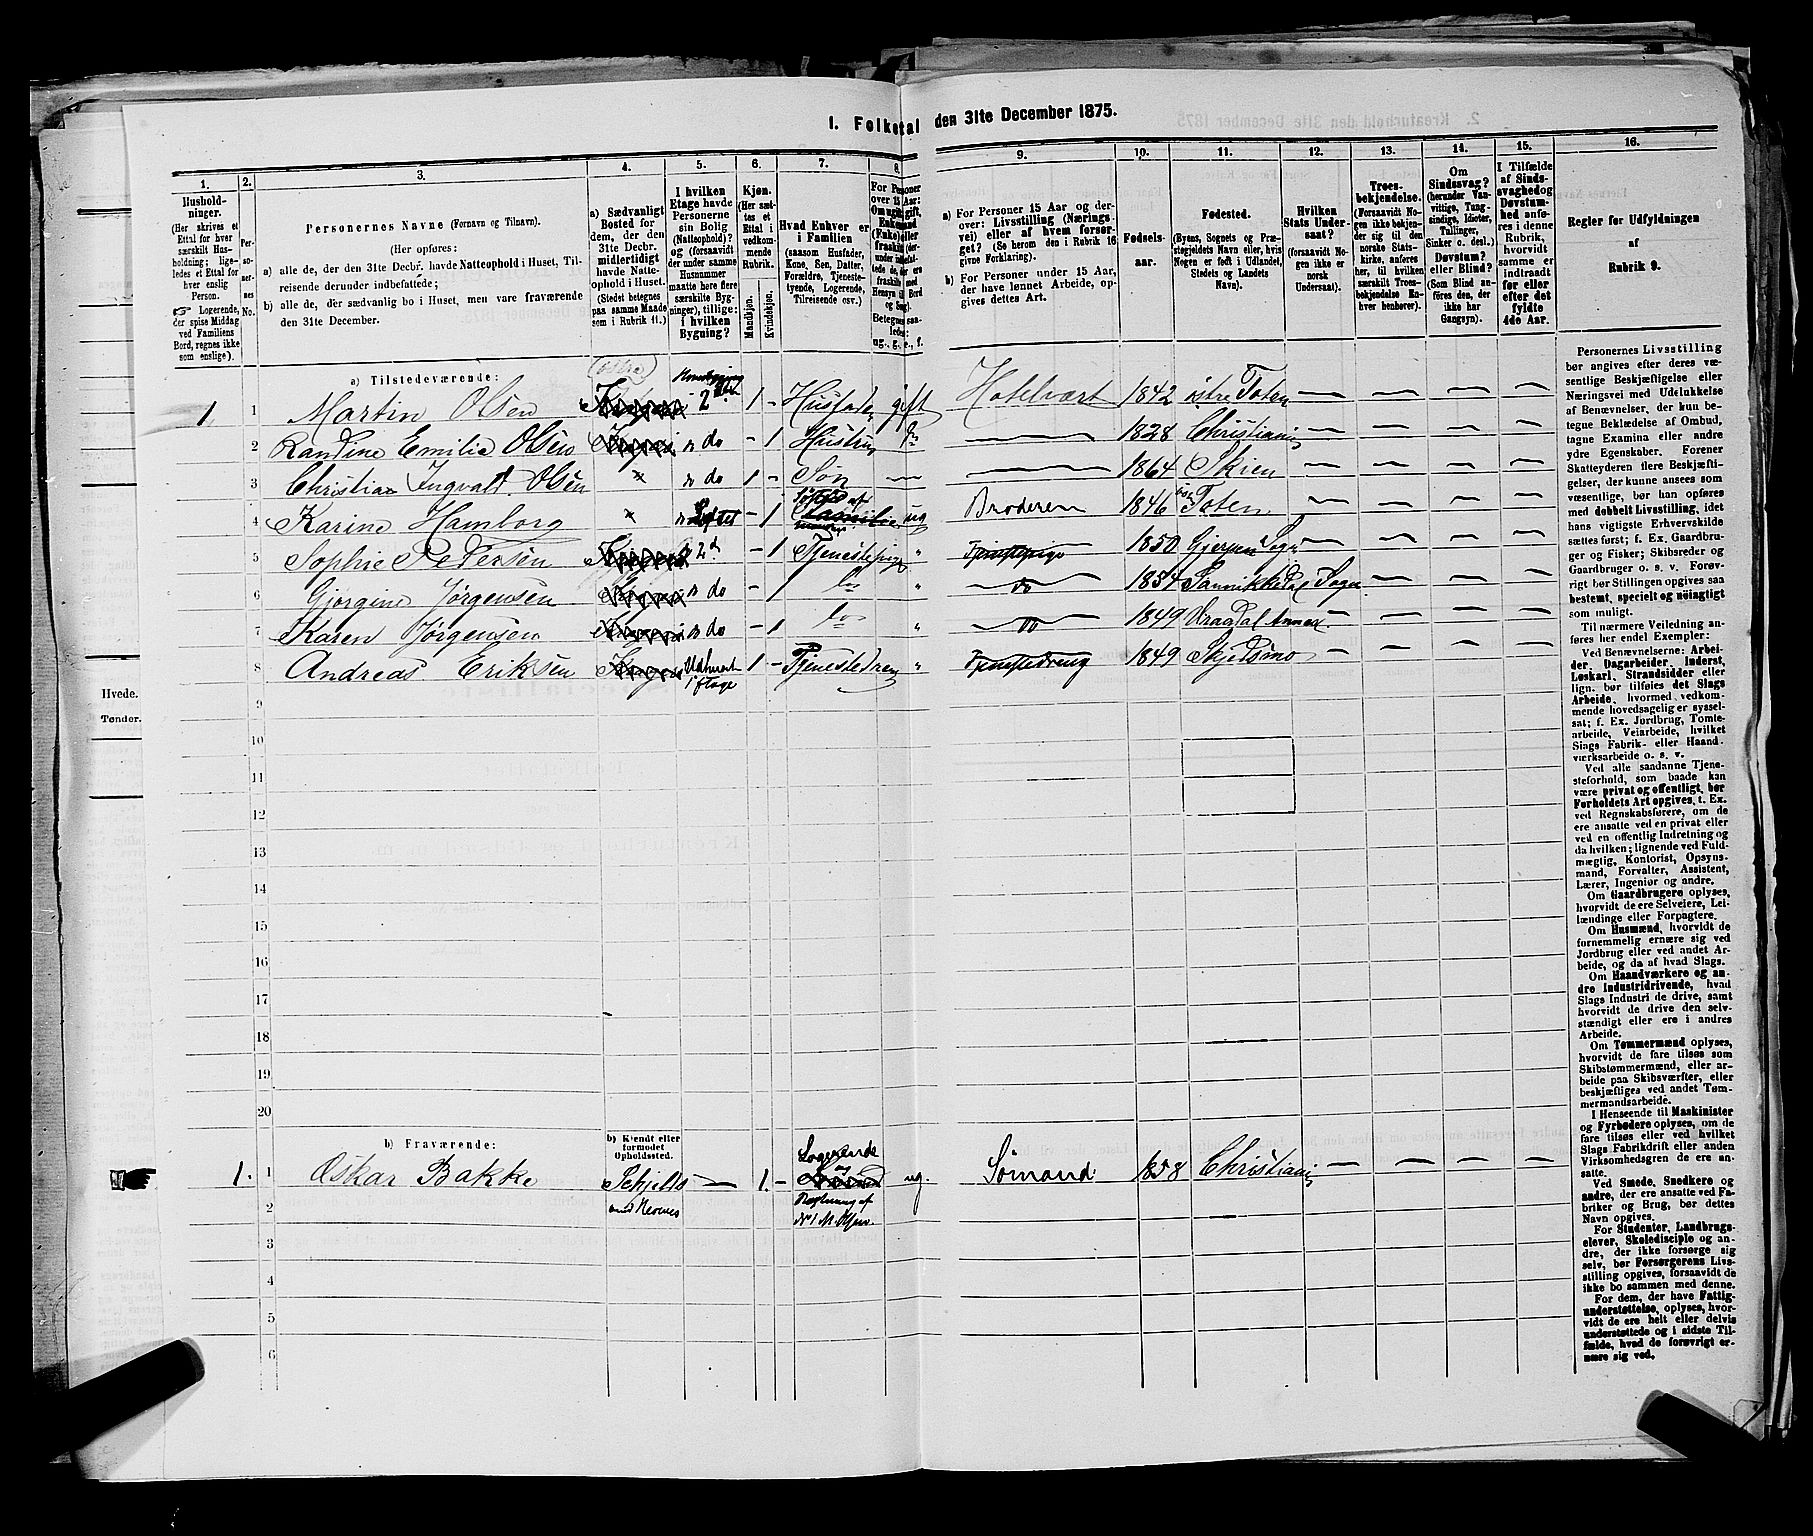 1. Folketal den 31te December 1875.
1. 2. 3. 4. 5. 6. 7. 8. 9. 10. 11. 12. 13. 14. 15. 16.
Hushold-
ninger.
(Her skrives et
Ettal for hver
særskilt Hus-
holdning; lige-
ledes et Ettal for
hver enslig
Person.
☞ Logerende,
der spise Middag
ved Familiens
Bord, regnes ikke
som enslige).
Per-
so-
ner-
nes
No.
Personernes Navne (Fornavn og Tilnavn).
(Her opføres:
a) alle de, der den 31te Decbr. havde Natteophold i Huset, Til-
reisende derunder indbefattede;
b) alle de, der sædvanlig bo i Huset, men vare fraværende
den 31te December.
a) Sædvanligt
Bosted for
dem, der den
31te Decbr.
midlertidigt
havde Natte-
ophold i Huset.
(Stedet betegnes
paa samme Maade
som i Rubrik 11.)
I hvilken
Etage havde
Personerne
sin Bolig
(Natteophold)?
og (forsaavidt
der under samme
Husnummer
maatte høre flere
særskilte Byg-
ninger), tillige:
i hvilken
Bygning?
Kjøn.
(Her sæt-
tes et
Ettal i
vedkom-
mende
Rubrik.
Mandkjøn.
Kvindekjøn.
Hvad Enhver er
i Familien
(saasom Husfader,
Kone, Søn, Datter,
Forældre, Tjeneste-
tyende, Logerende,
Tilreisende osv.)
For Personer
over 15 Aar:
ug., g., e., f.
a) For Personer 15 Aar og der-
over: Livsstilling (Nærings-
vei) eller af hvem forsør-
get? (Se herom den i Rubrik 16
givne Forklaring).
b) For Personer under 15 Aar,
der have lønnet Arbeide, op-
gives dettes Art.
Fødsels-
aar.
Fødested.
(Byens, Sognets og Præ-
stegjeldets Navn eller, hvis
Nogen er født i Udlandet,
Stedets og Landets
Navn).
Hvilken
Stats Under-
saat?
(forsaavidt No-
gen ikke er
norsk
Undersaat).
Troes-
bekjendelse.
(Forsaavidt No-
gen ikke bekjen-
der sig til den
norske Stats-
kirke, anføres
her, til hvilken
særskilt Troes-
bekjendelse En-
hver henhører).
Om
Sindssvag?
(herunder Van-
vittige, Tung-
sindige, Idioter,
Tullinger,
Sinker o. desl.)
Døvstum?
eller Blind?
(Som Blind an-
føres den, der
ikke har
Gangsyn).
I Tilfælde
af Sinds-
svaghed og
Døvstum-
hed anfø-
res i denne
Rubrik,
hvorvidt
samme er
indtraadt
før eller
efter det
fyldte
4de Aar.
Regler for Udfyldningen
af
Rubrik 9.
a) Tilstedeværende:
1 1 Martin Olsen 2 1 - Husfader gift Hotelvært 1842 østre Toten
2 Randine Emilie Olsen do - 1 Hustru 1828 Christiania
3 Christian Ingvald Olsen do 1 - Søn 1864 Skien
4 Karine Hamborg Loftet - 1 ug Broderen 1846 Toten
5 Sophie Pedersen 2d - 1 Tjenestepige " Tjenestepige 1850 Gjerpen Sogn
6 Gjorgine Jørgensen do - 1 do " do 1854 Sannikkedal Sogn
7 Karen Jørgensen do - 1 do " do 1849 Dragdal Annex
8 Andreas Eriksen 1 - Tjenestedreng " Tjenestedreng 1849 Skjedsmo
9
10
11
12
13
14
15
16
17
18
19
20
b) Fraværende:
b) Kjendt eller
formodet
Opholdssted.
1. 1 Oskar Bakke 1. - Logerende ug. Sømand 1858 Christiania
2
3
4
5
6
Personernes Livsstilling
bør angives efter deres væ-
sentlige Beskjæftigelse eller
Næringsvei med Udelukkelse
af Benævnelser, der kun be-
tegne Beklædelse af Ombud,
tagne Examina eller andre
ydre Egenskaber. Forener
Skatteyderen flere Beskjæfti-
gelser, der kunne ansees som
væsentlige, bør han opføres
med dobbelt Livsstilling, idet
hans vigtigste Erhvervskilde
sættes først; f. Ex. Gaardbru-
ger og Fisker; Skibsreder og
Gaardbruger o. s. v. Forøv-
rigt bør Stillingen opgives saa
bestemt, specielt og nøiagtigt
som muligt.
Til nærmere Veiledning an-
føres her endel Exempler:
Ved Benævnelserne: Arbei-
der, Dagarbeider, Inderst,
Løskarl, Strandsidder eller
lign. bør tilføies det Slags
Arbeide, hvormed vedkom-
mende hovedsagelig er syssel-
sat; f. Ex. Jordbrug, Tomte-
arbeide, Veiarbeide, hvilket
Slags Fabrik- eller Haand-
værksarbeide o. s. v.
Ved alle saadanne Tjene-
steforhold, som baade kan
være privat og offentligt, bør
Forholdets Art opgives, t. Ex.
ved Regnskabsførere, om de
ere ansatte ved en privat eller
ved en offentlig Indretning og
da hvilken; lignende ved Fuld-
mægtig, Kontorist, Opsyns-
mand, Forvalter, Assistent,
Lærer, Ingeniør og andre.
Om Gaardbrugere oplyses,
hvorvidt de ere Selveiere, Lei-
lændinge eller Forpagtere.
Om Husmænd, hvorvidt de
fornemmelig ernære sig ved
Jordbrug eller ved andet Ar-
beide, og da af hvad Slags.
Om Haandværkere og an-
dre Industridrivende, hvad
Slags Industri de drive, samt
hvorvidt de drive den selv-
stændigt eller ere i andres
Arbeide.
Om Tømmermænd oplyses,
hvorvidt de fare tilsøs som
Skibstømmermænd, eller ar-
beide paa Skibsværfter, eller
beskjæftiges ved andet Tøm-
mermandsarbeide.
I Henseende til Maskinister
og Fyrbødere oplyses, om de
fare tilsøs eller ved hvilket
Slags Fabrikdrift eller anden
Virksomhedsgren de ere an-
satte.
Ved Smede, Snedkere og
andre, der ere ansatte ved Fa-
briker og Brug, bør dettes
Navn opgives.
For Studenter, Landbrugs-
elever, Skoledisciple og an-
dre, der ikke forsørge sig
selv, bør Forsørgerens Livs-
stilling opgives, forsaavidt de
ikke bo sammen med denne.
For dem, der have Fattig-
understøttelse, oplyses, hvor-
vidt de ere helt eller delvis
understøttede og i sidste Til-
fælde, hvad de forøvrigt er-
nære sig ved.
Hvede.
Tønder.